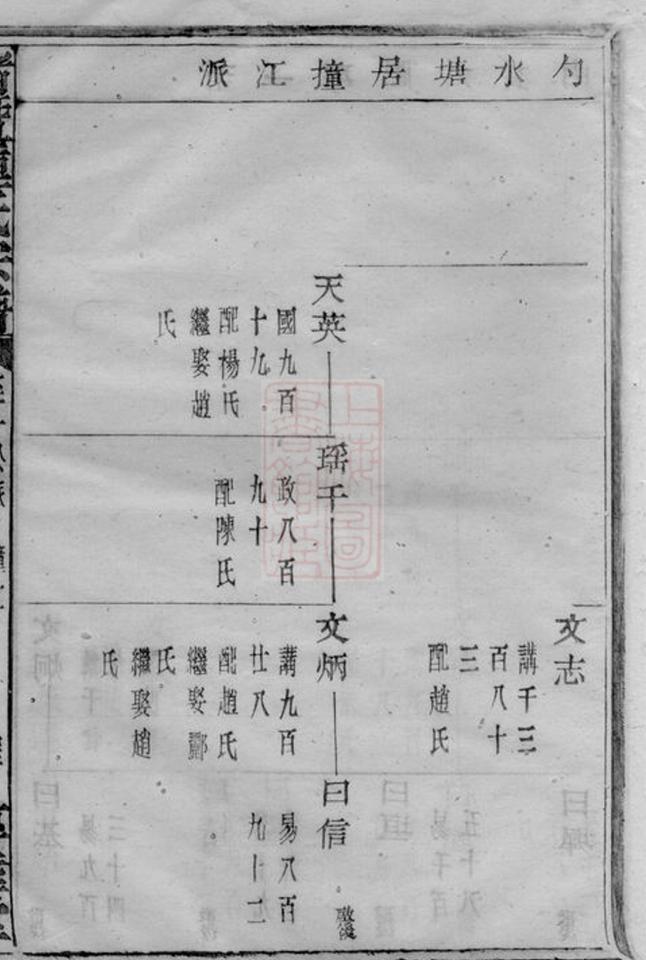 勺水塘居撞江派
文志
講千三
百八十
三
配趙氏
天英
國九百
十九
配楊氏
繼娶趙
氏
瑶千
政八百
九十
配陳氏
文炳
講九百
廿八
配趙氏
繼娶酈
氏
繼娶趙
氏
曰信
易八百
九十二